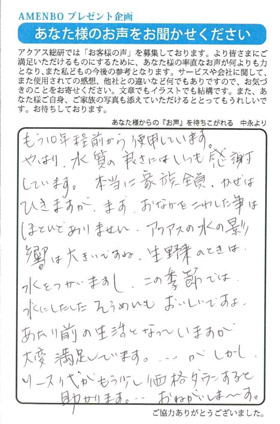 AMENBO プレゼント企画
あなた様のお声をお聞かせください
アクアス総研では「お客様の声」を募集しております。より皆さまにご
満足いただけるものにするために、あなた様の率直なお声が何よりも力
となり、また私どもの今後の参考となります。サービスや会社に関して、
また使用されての感想、他社との違いなど何でもありますので、お気づ
きのことをお寄せください。文章でもイラストでも結構です。また、あ
なた様ご自身、ご家族の写真も添えていただけるととってもうれしいで
す。お待ちしております。
あなた様からの『お声』を待ちこがれる 中永より
もう10年程前から使用しています。
やはり、水質の良さにはいつも感謝
しています。本当に家族全員、かぜは
ひきますが、まず、おなかをこわした事は
ほとんどありません。アクアスの水の影
響は大きいですね。生野菜のときは、
水をつかいますし、この季節では
水にひたしたそうめんもおいしいですよ。
あたり前の生活となっていますが
大変満足しています。…が しかし、
リース代がもう少し価格ダウンすると
助かります。… おねがいしまーす。
ご協力ありがとうございました。